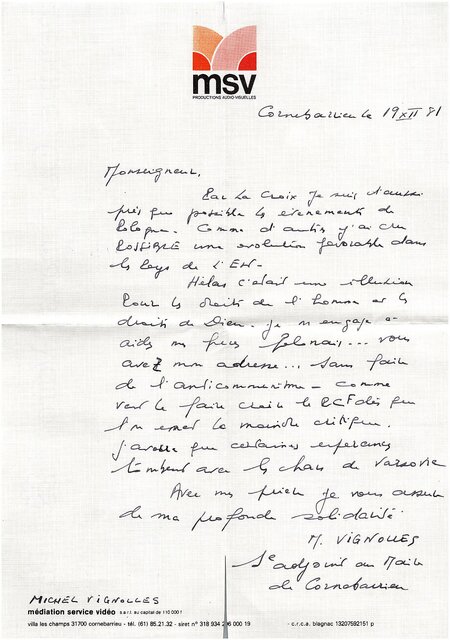 msv
PRODUCTIONS AUDIO-VISUELLES
Cornebarrieu le 19 XII 81
Monseigneur,
Par La Croix je suis d'aussi
près que possible les évènements de
Pologne. Comme d'autres j'ai cru
POSSIBLE une évolution favorable dans
les Pays de l'Est.
Hélas c'était une illusion
Pour les droits de l'homme et les
droits de Dieu. je m'engage à
aider mes frères Polonais... vous
avez mon adresse... sans faire
de l'anticommunisme - comme
veut le faire croire le PCF dès que
l'on émet la moindre critique.
j'avoue que certaines espérances
tombent avec les chars de Varsovie
Avec ma prière je vous assure
de ma profonde solidarité
M. VIGNOLLES
adjoint au Maire
de Cornebarrieu
MICHEL VIGNOLLES
médiation service vidéo s.a.r.l. au capital de 110 000 f
villa les champs 31700 cornebarrieu - tél. (61) 85.21.32 - siret n° 318 934 206 000 19 - c.r.c.a. blagnac 13207592151 p